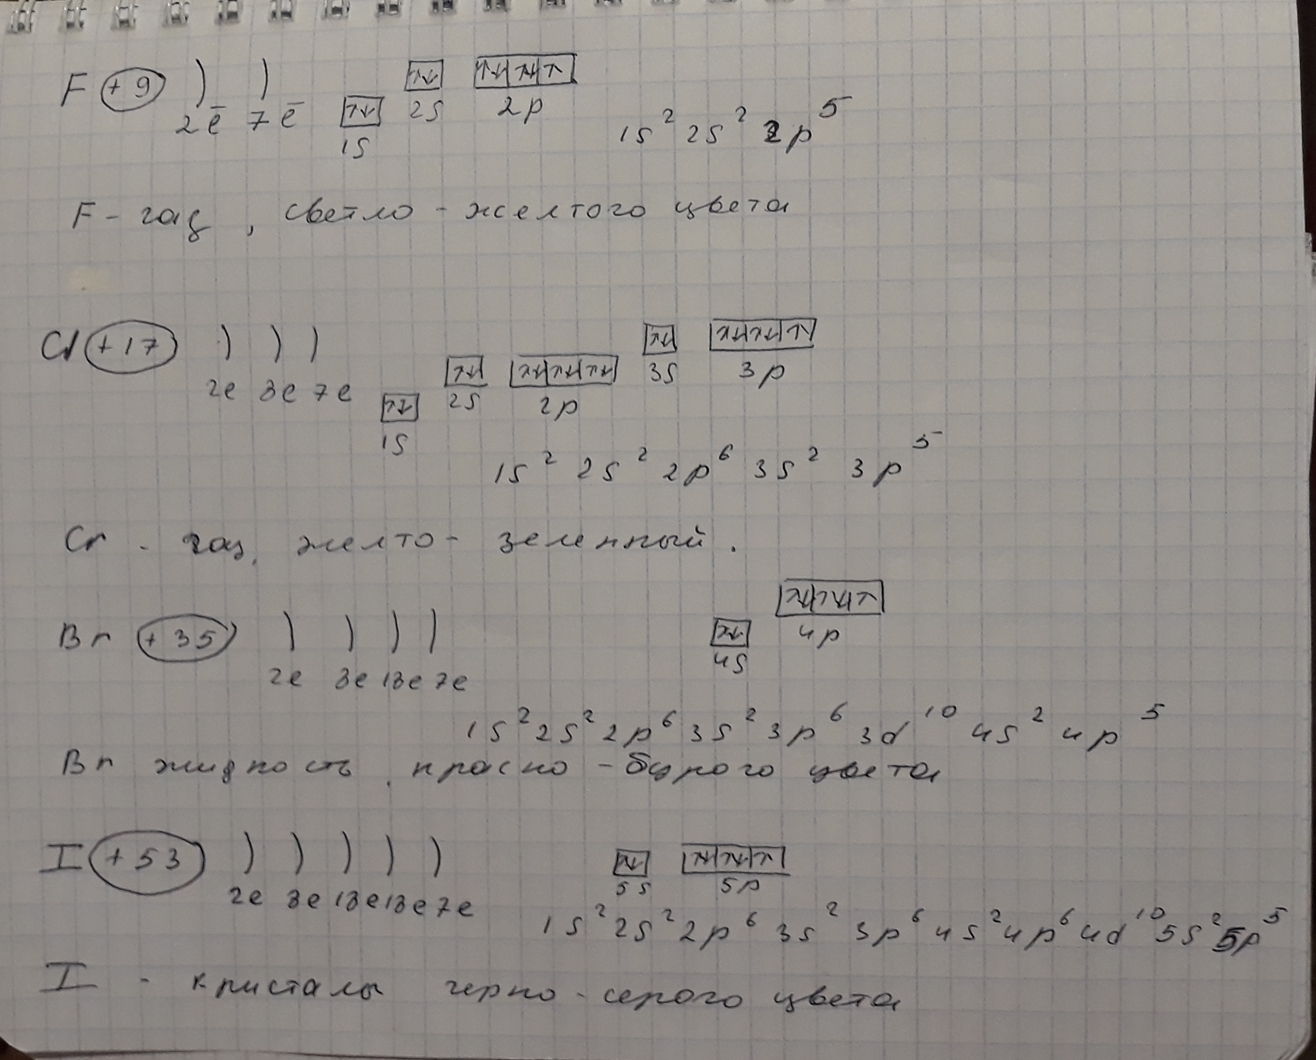 F +9 ) )
2ē 7ē
↑↓ ↑↓ ↑↓ ↑↓ ↑
1s 2s 2p
1s² 2s² 2p⁵
F - газ, светло - желтого цвета
Cl +17 ) ) )
2e 8e 7e
↑↓ ↑↓ ↑↓ ↑↓ ↑↓ ↑↓ ↑↓ ↑↓ ↑
1s 2s 2p 3s 3p
1s² 2s² 2p⁶ 3s² 3p⁵
Cr - газ, желто - зеленный.
Br +35 ) ) ) )
2e 8e 18e 7e
↑↓ ↑↓ ↑↓ ↑
4s 4p
1s² 2s² 2p⁶ 3s² 3p⁶ 3d¹⁰ 4s² 4p⁵
Br жидкость, красно - бурого цвета
I +53 ) ) ) ) )
2e 8e 18e 18e 7e
↑↓ ↑↓ ↑↓ ↑
5s 5p
1s² 2s² 2p⁶ 3s² 3p⁶ 4s² 4p⁶ 4d¹⁰ 5s² 5p⁵
I - кристалы черно - серого цвета